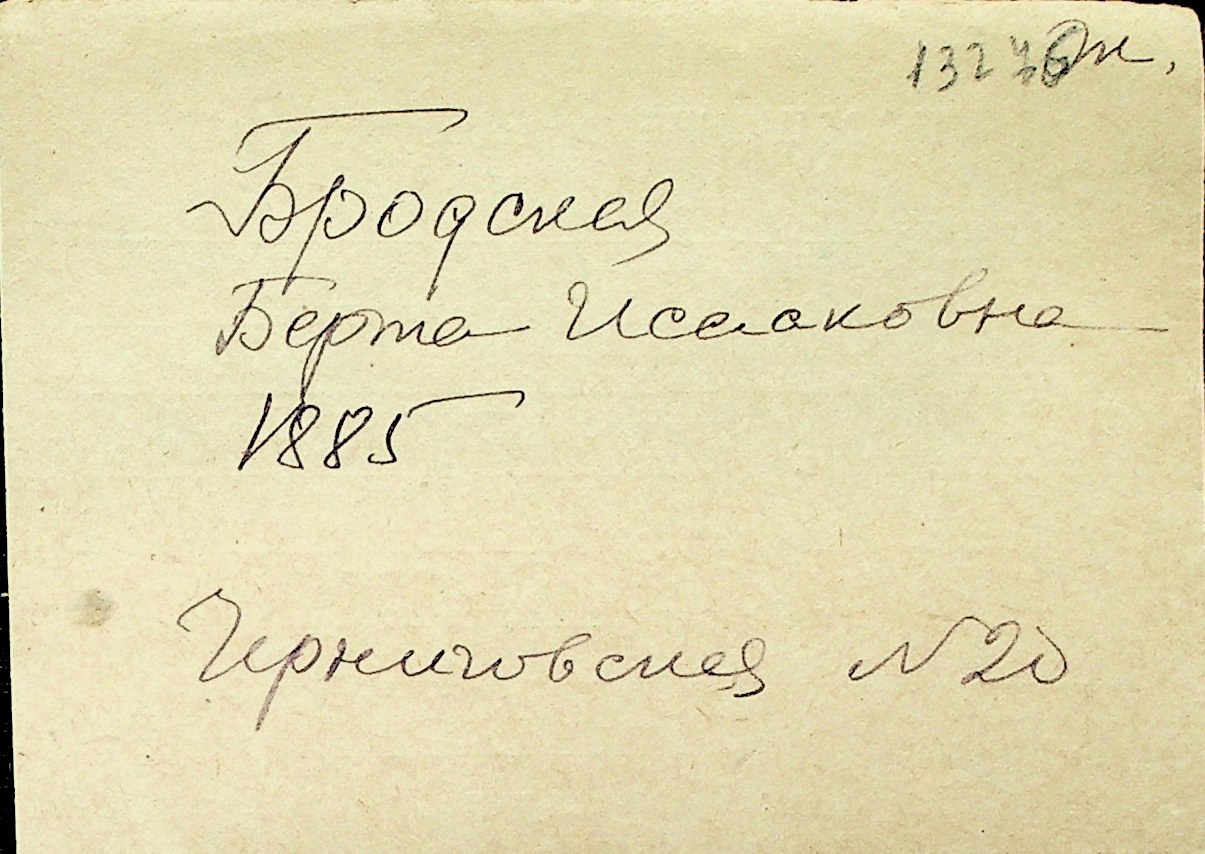 Бродская
Берта Исааковна
1885
Черниговская N 20